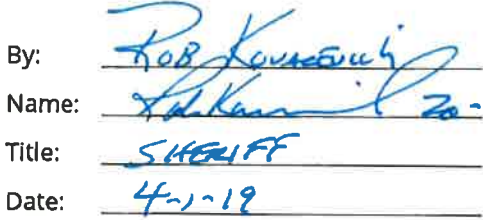 By: ROB KOVACEVICH
Name: 20-
Title: SHERIFF
Date: 4-1-19